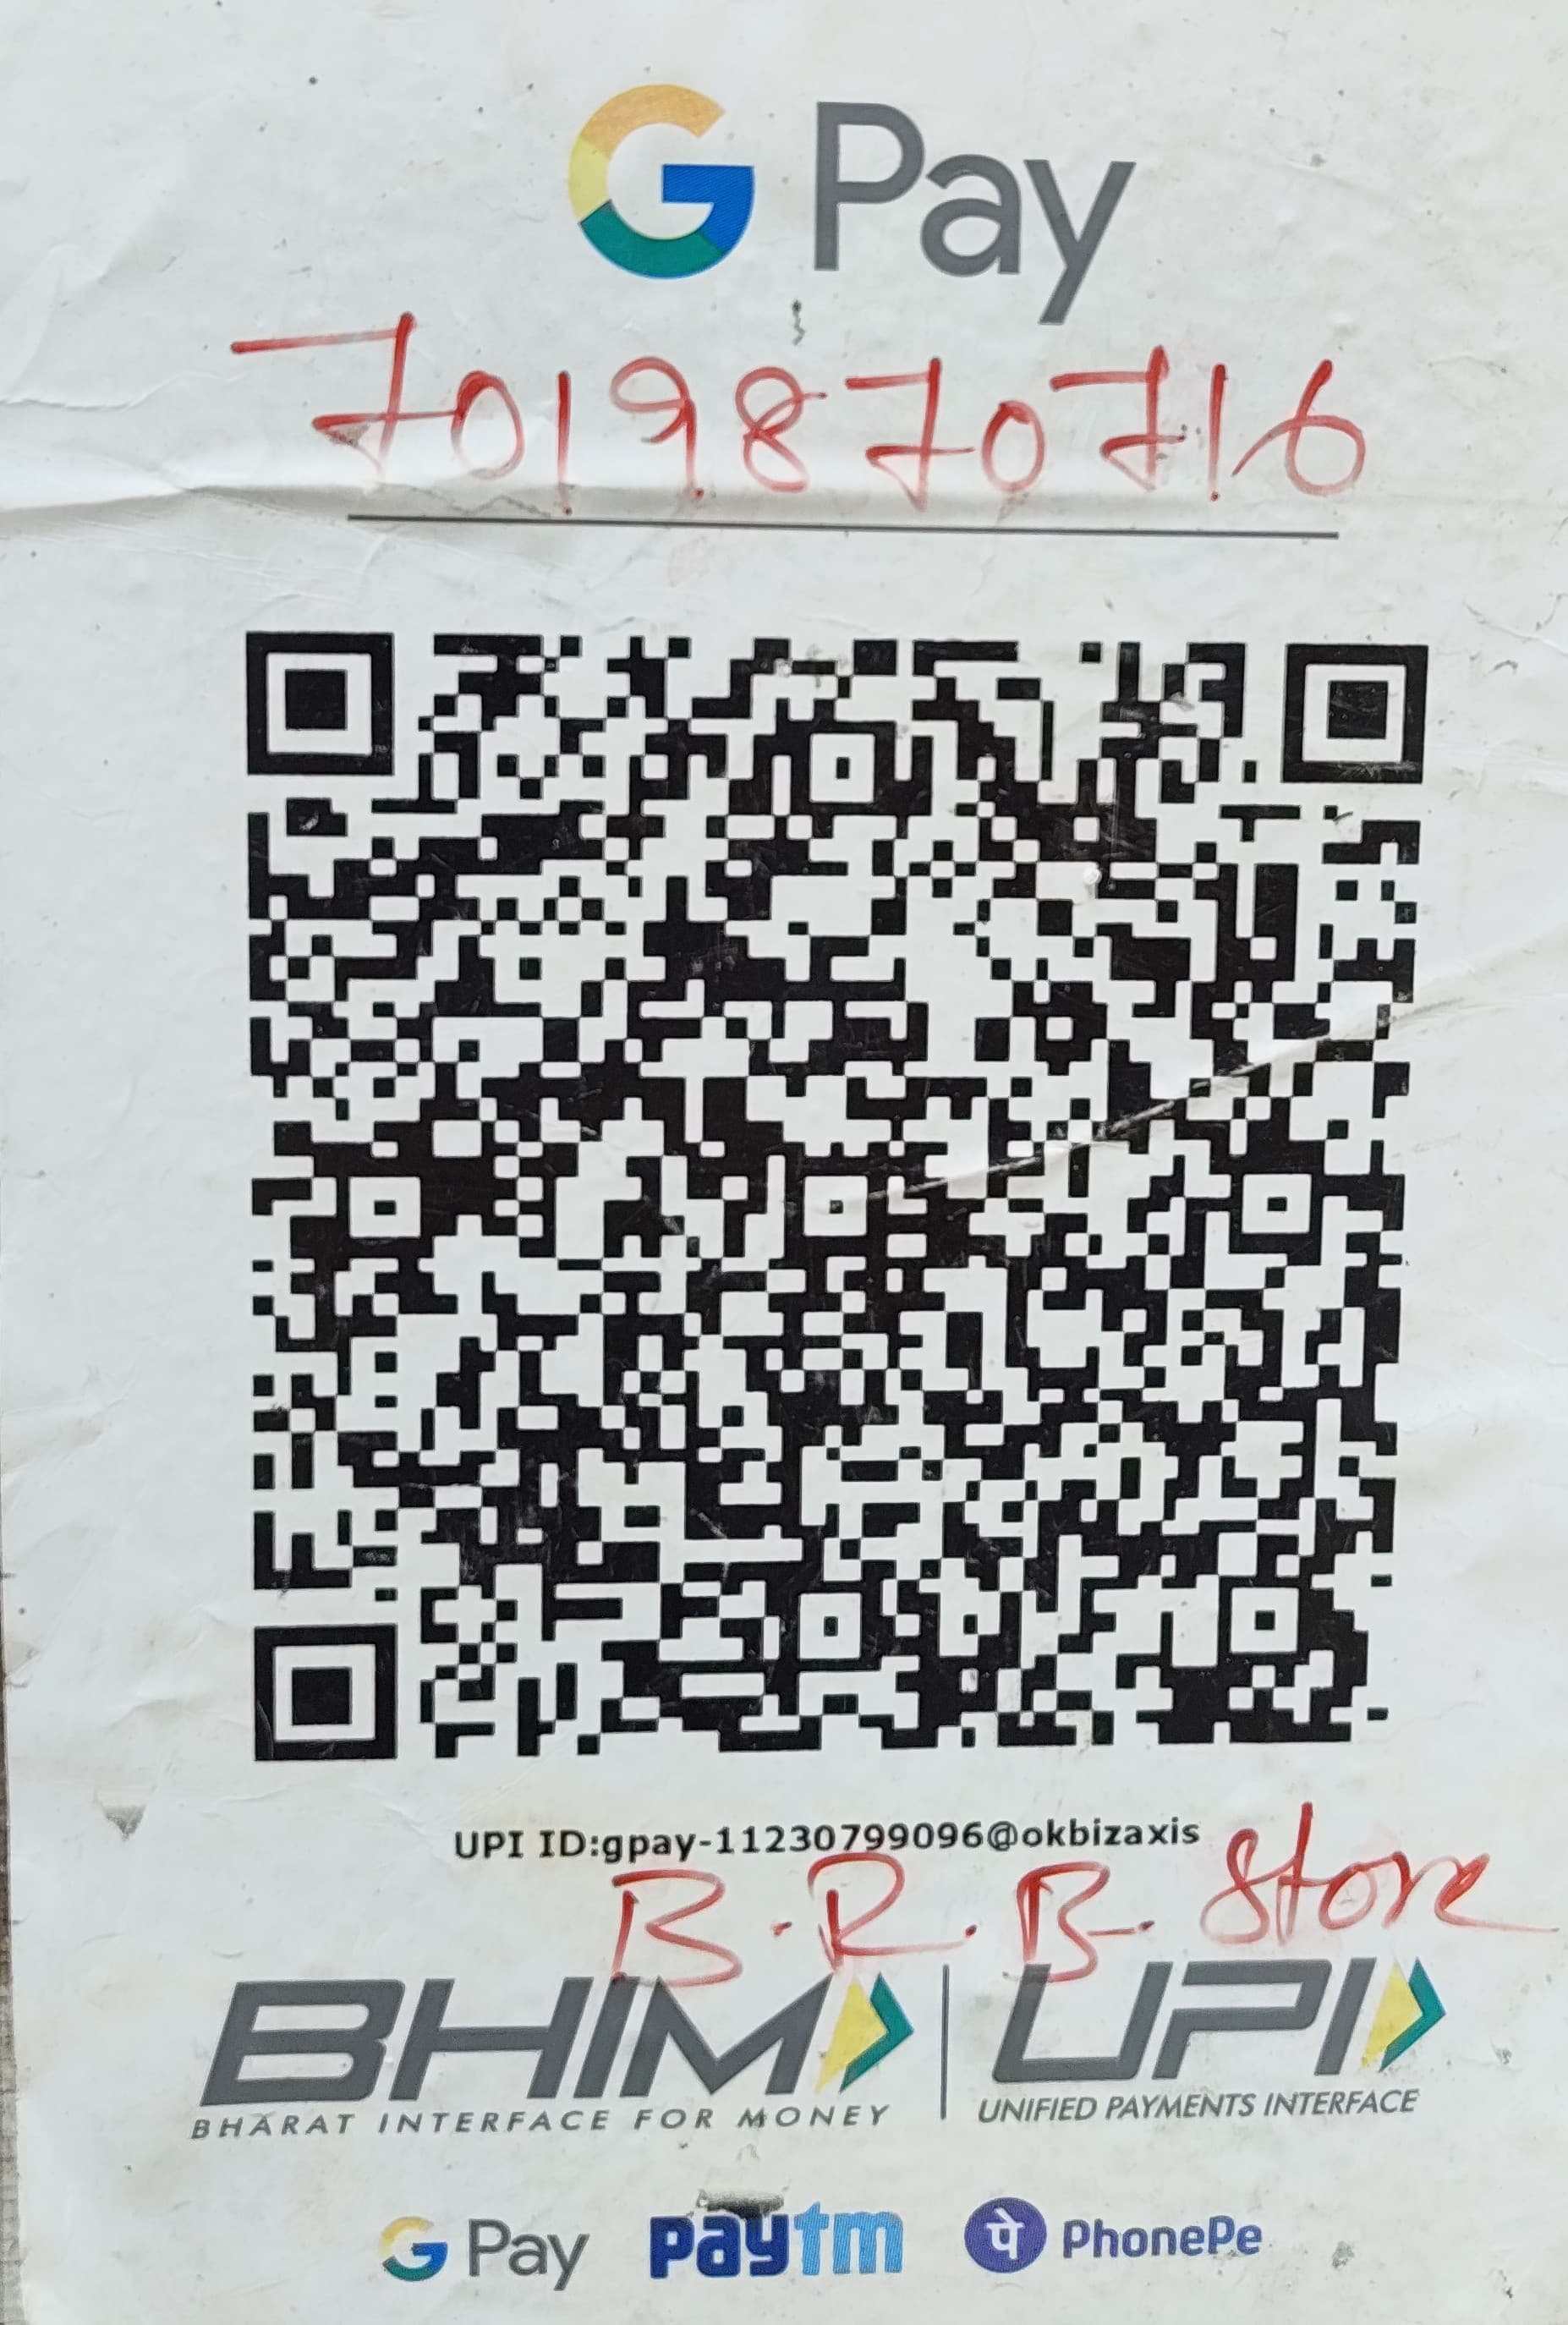 G Pay
7019870716
UPI ID:gpay-11230799096@okbizaxis
B.R.B. Store
BHIM UPI
BHARAT INTERFACE FOR MONEY UNIFIED PAYMENTS INTERFACE
G Pay paytm पे PhonePe